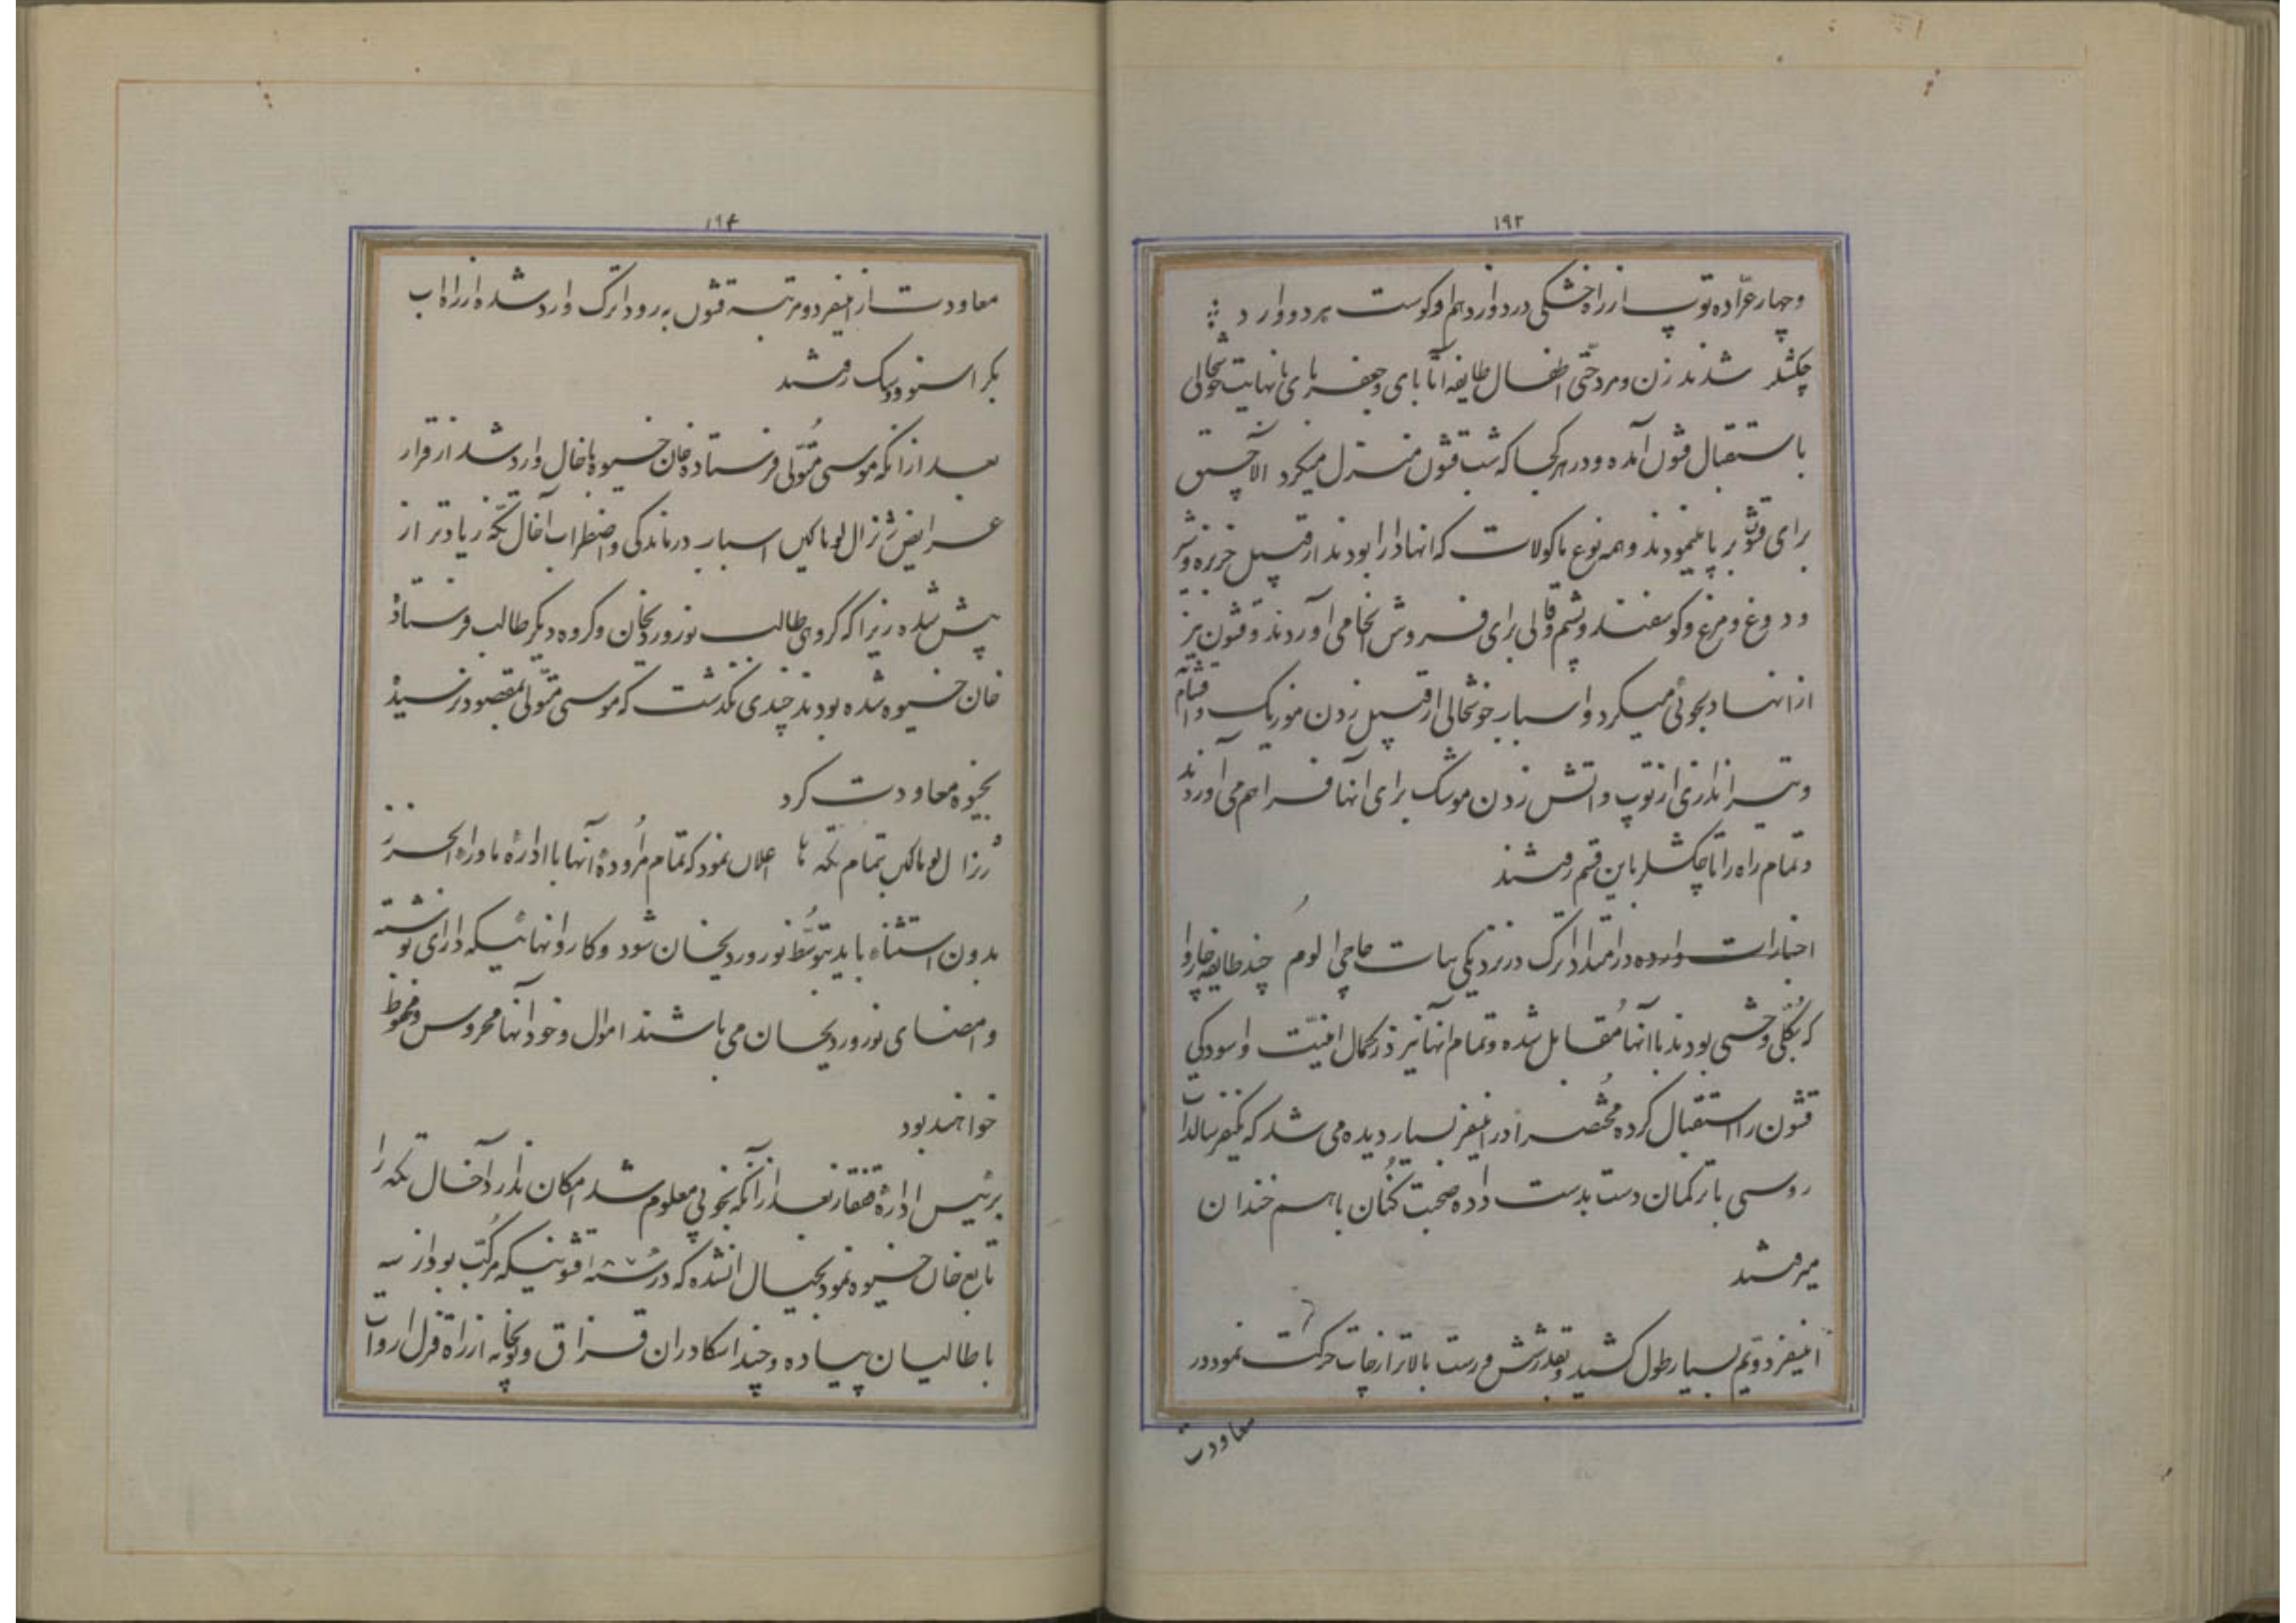 ۱۹۳
وچهار عرّاده توپ از راه خشکی در دوازدهم اوکوست هر دو وارد
چکشلر شدند زن و مرد حتّی اطفال طایفه آتابای وجعفربای با نهایت خوشحالی
باستقبال قشون آمده ودر هر کجا که شب قشون منزل میکرد الاچیق
برای قشون بر پا مینمودند وهمه نوع ماکولات که انها دارا بودند از قبیل خربزه وشیر
ودوغ ومرغ وکوسفند وپشم وقالی برای فروش انجا می اوردند وقشون نیز
از انها دلجوئی میکرد واسباب خوشحالی از قبیل زدن موزیک و
وتیراندازی از توپ واتش زدن موشک برای انها فراهم می اوردند
وتمام راه را تا چکشلر باین قسم رفتند
اخبارات وارده در امتداد اترک در نزدیکی بیات حاجی الوم چند طایفه چاروا
که بکلّی وحشی بودند با آنها مُقابل شده وتمام انها نیز در کمال امنیّت واسودگی
قشون را استقبال کرده مُختصراً در اینسفر بسیار دیده می شد که یکنفر سالدات
روسی با ترکمان دست بدست داده صحبت کُنان باهم خندان
میرفتند
اینسفر دویّم بسیار طول کشید وبقدر شش ورست بالاتر از چات حرکت نمود در
معاودت
۱۹۴
معاودت از اینسفر دو مرتبه قشون به رود اترک وارد شده از راه اب
بکراسنوودسک رفتند
بعد از انکه موسی متولّی فرستاده خان خیوه باخال وارد شد از قرار
عرایض ژنرال لوماکین اسباب درماندگی واضطراب آخال تکّه زیادتر از
پیش شده زیرا که گروهی طالب نوروردیخان وگروه دیگر طالب فرستاده
خان خیوه شده بودند چندی نگذشت که موسی متولّی بمقصود نرسیده
بخیوه معاودت کرد
ژنرال لوماکین بتمام تکّه ها اعلان نمود که تمام مُراوده آنها با اداره ماوراء الخزر
بدون استثناء باید بتوسُّط نوروردیخان شود وکاروانهائیکه دارای نوشته
وامضای نوروردیخان می باشند اموال وخود آنها محروس ومحفوظ
خواهند بود
برئیس اداره قفقاز بعد از آنکه بخوبی معلوم شد امکان ندارد آخال تکّه را
تابع خان خیوه نمود بخیال افتاده که در قشونیکه مرکّب بود از سه
باطالیان پیاده وچند اسکادران قزاق وتوپخانه از راه قزل اروات